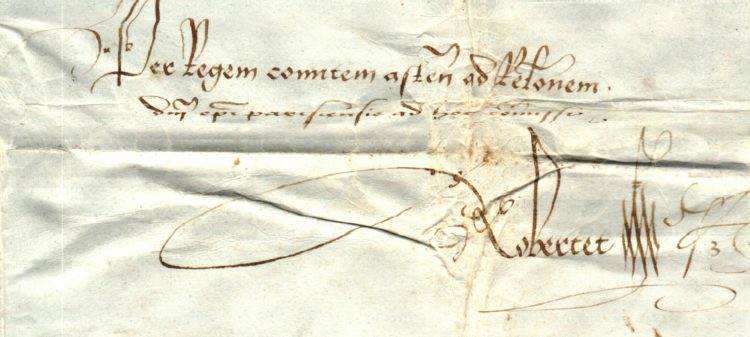 Per Regem comitem asten ad Relonem.
dni epi parisiensis ad hoc commissi
Robertet